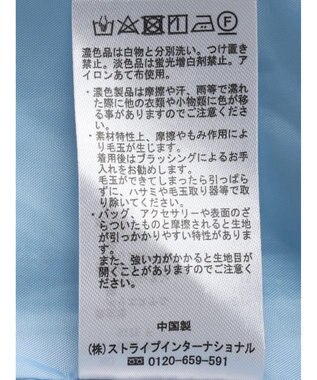 濃色品は白物と分別洗い。つけ置き
禁止。淡色品は蛍光増白剤禁止。ア
イロンあて布使用。
・濃色製品は摩擦や汗、雨等で濡れ
た際に他の衣類や小物類に色が移
る事がありますのでご注意くださ
い。
・素材特性上、摩擦やもみ作用によ
り毛玉が生じます。
着用後はブラッシングによるお手
入れをお勧めします。
毛玉ができてしまったら引っぱら
ずに、ハサミや毛玉取り器等で取
り除いてください。
・バッグ、アクセサリーや表面のざ
らついたものと摩擦されると生地
が引っかかりやすい特性がありま
す。
また、強い力がかかると生地目が
開くことがありますのでご注意く
ださい。
中国製
(株)ストライプインターナショナル
☏ 0120-659-591